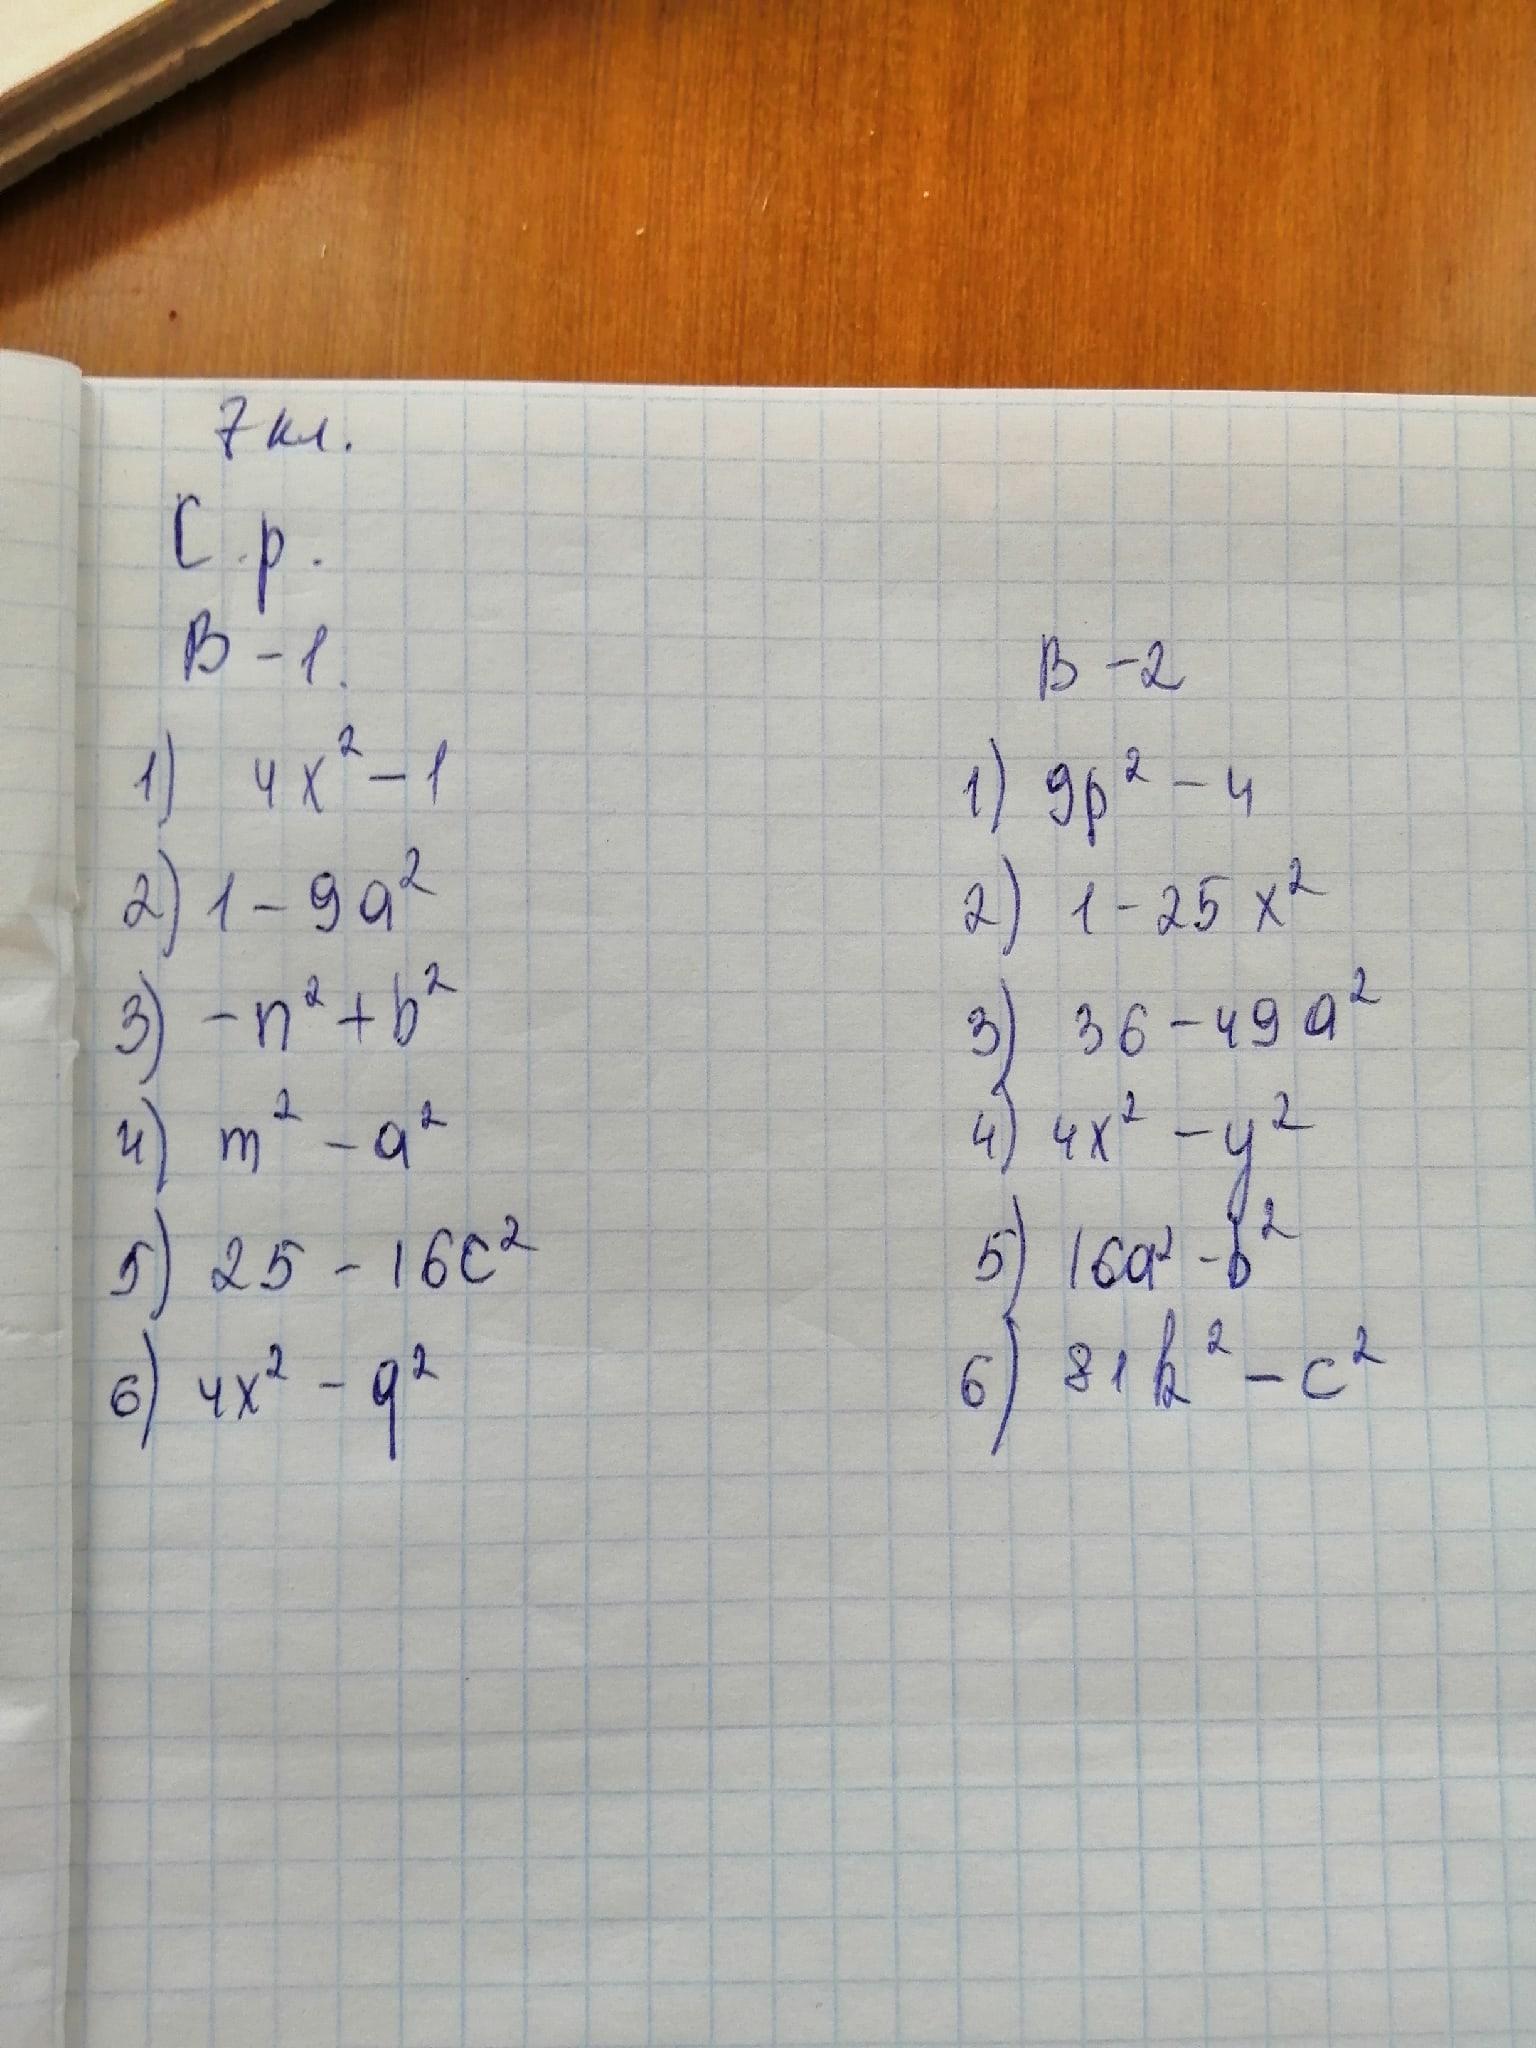 7 кл.
С.р.
В-1.
1) 4x² - 1
2) 1 - 9a²
3) -n² + b²
4) m² - a²
5) 25 - 16c²
6) 4x² - q²
В-2
1) 9p² - 4
2) 1 - 25x²
3) 36 - 49a²
4) 4x² - y²
5) 16a² - b²
6) 81k² - c²